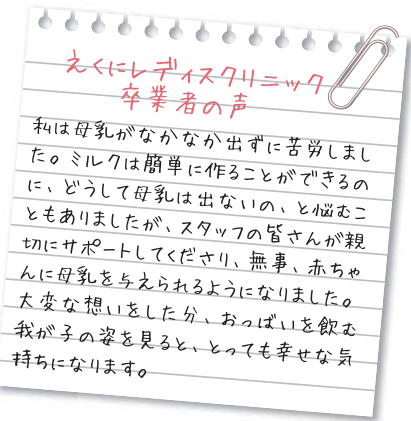 えくにレディスクリニック
卒業者の声
私は母乳がなかなか出ずに苦労しまし
た。ミルクは簡単に作ることができるの
に、どうして母乳は出ないの、と悩むこ
ともありましたが、スタッフの皆さんが親
切にサポートしてくださり、無事、赤ちゃ
んに母乳を与えられるようになりました。
大変な想いをした分、おっぱいを飲む
我が子の姿を見ると、とっても幸せな気
持ちになります。